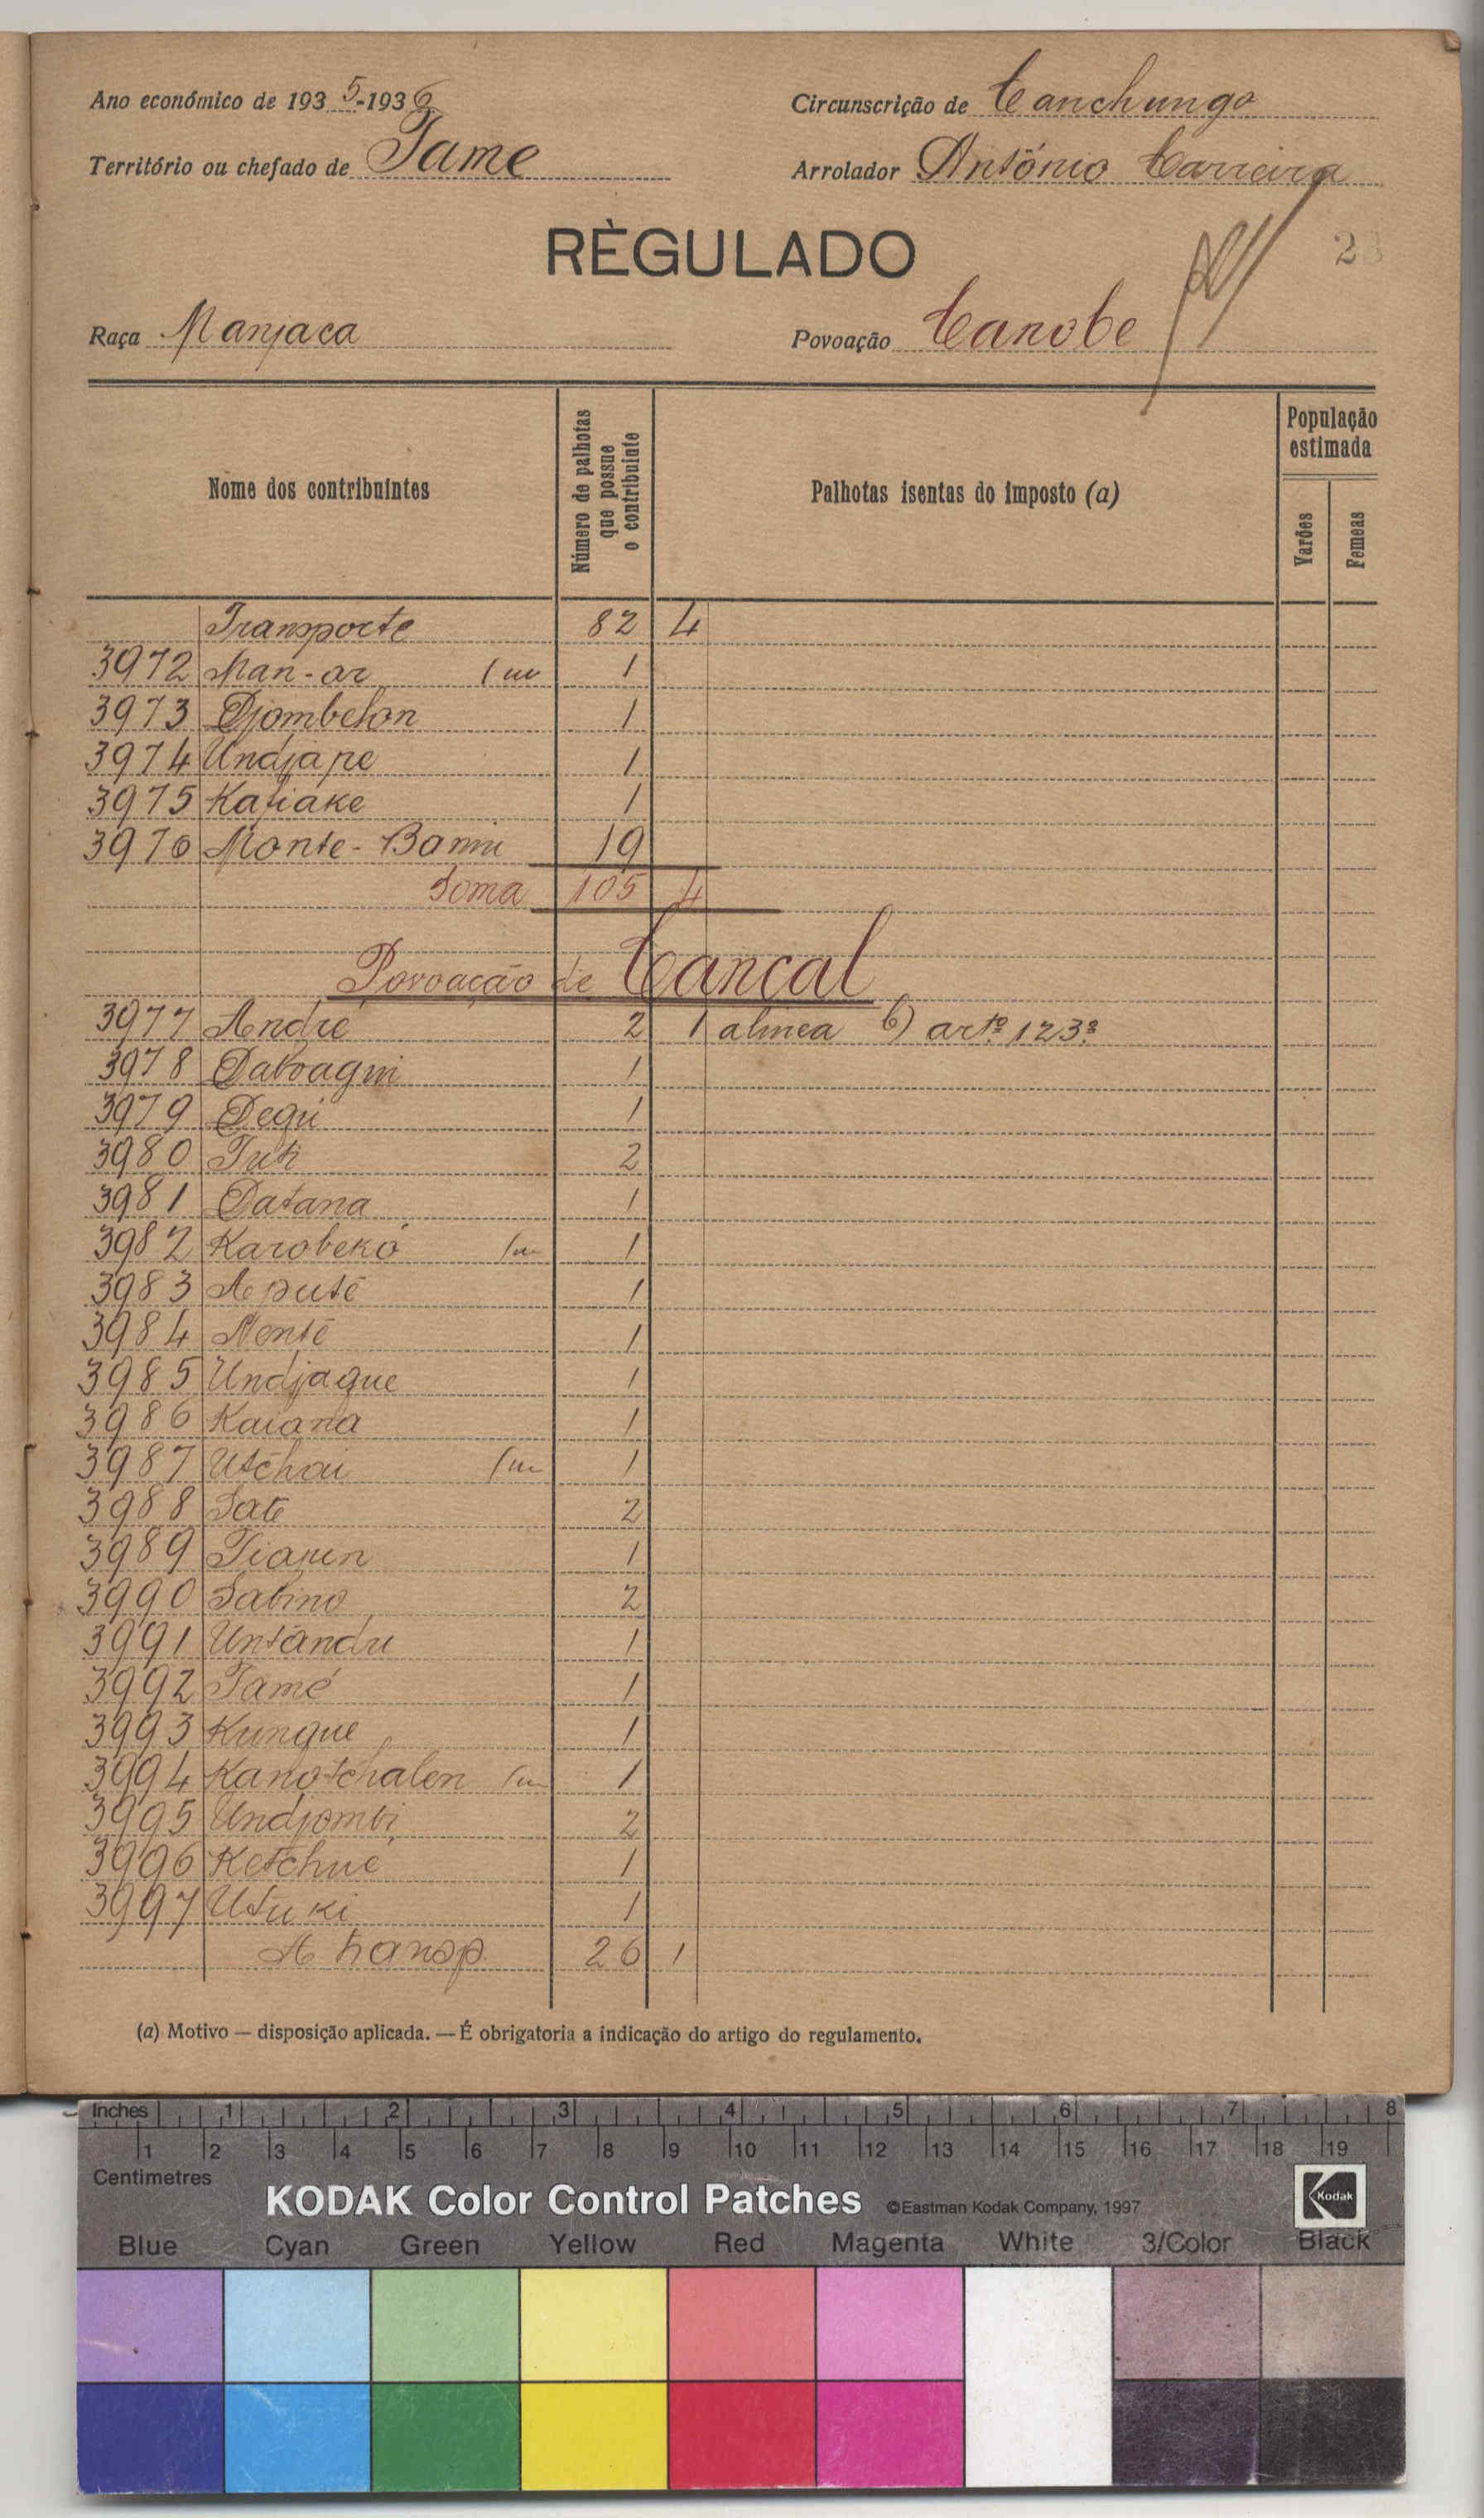 Ano económico de 1935-1936
Circunscrição de Canchungo
Território ou chefado de Tame
Arrolador António Carreira
RÈGULADO
23
Raça Manjaca
Povoação Canobe
Nome dos contribuintes
Número de palhotas que possue o contribuinte
Palhotas isentas do imposto (a)
População estimada
Varões
Femeas
Transporte 82 4
3972 Man-ar 1
3973 Djombelon 1
3974 Undjape 1
3975 Kafiake 1
3976 Monte-Banin 19
Soma 105 4
Povoação de Cancal
3977 André 2 1 alinea b) artº. 123º
3978 Daboagni 1
3979 Degui 1
3980 Tuk 2
3981 Datana 1
3982 Karobekó 1
3983 Aputé 1
3984 Nenté 1
3985 Undjague 1
3986 Kaiana 1
3987 Utchai 1
3988 Sate 2
3989 1
3990 Sabino 2
3991 Untandu 1
3992 Tamé 1
3993 Kungue 1
3994 Kanotchalen 1
3995 Undjombi 2
3996 Ketchué 1
3997 Utuki 1
A transp. 26 1
(a) Motivo — disposição aplicada. — É obrigatoria a indicação do artigo do regulamento.
Inches 1 2 3 4 5 6 7 8
1 2 3 4 5 6 7 8 9 10 11 12 13 14 15 16 17 18 19
Centimetres
KODAK Color Control Patches ©Eastman Kodak Company, 1997 Kodak
Blue Cyan Green Yellow Red Magenta White 3/Color Black